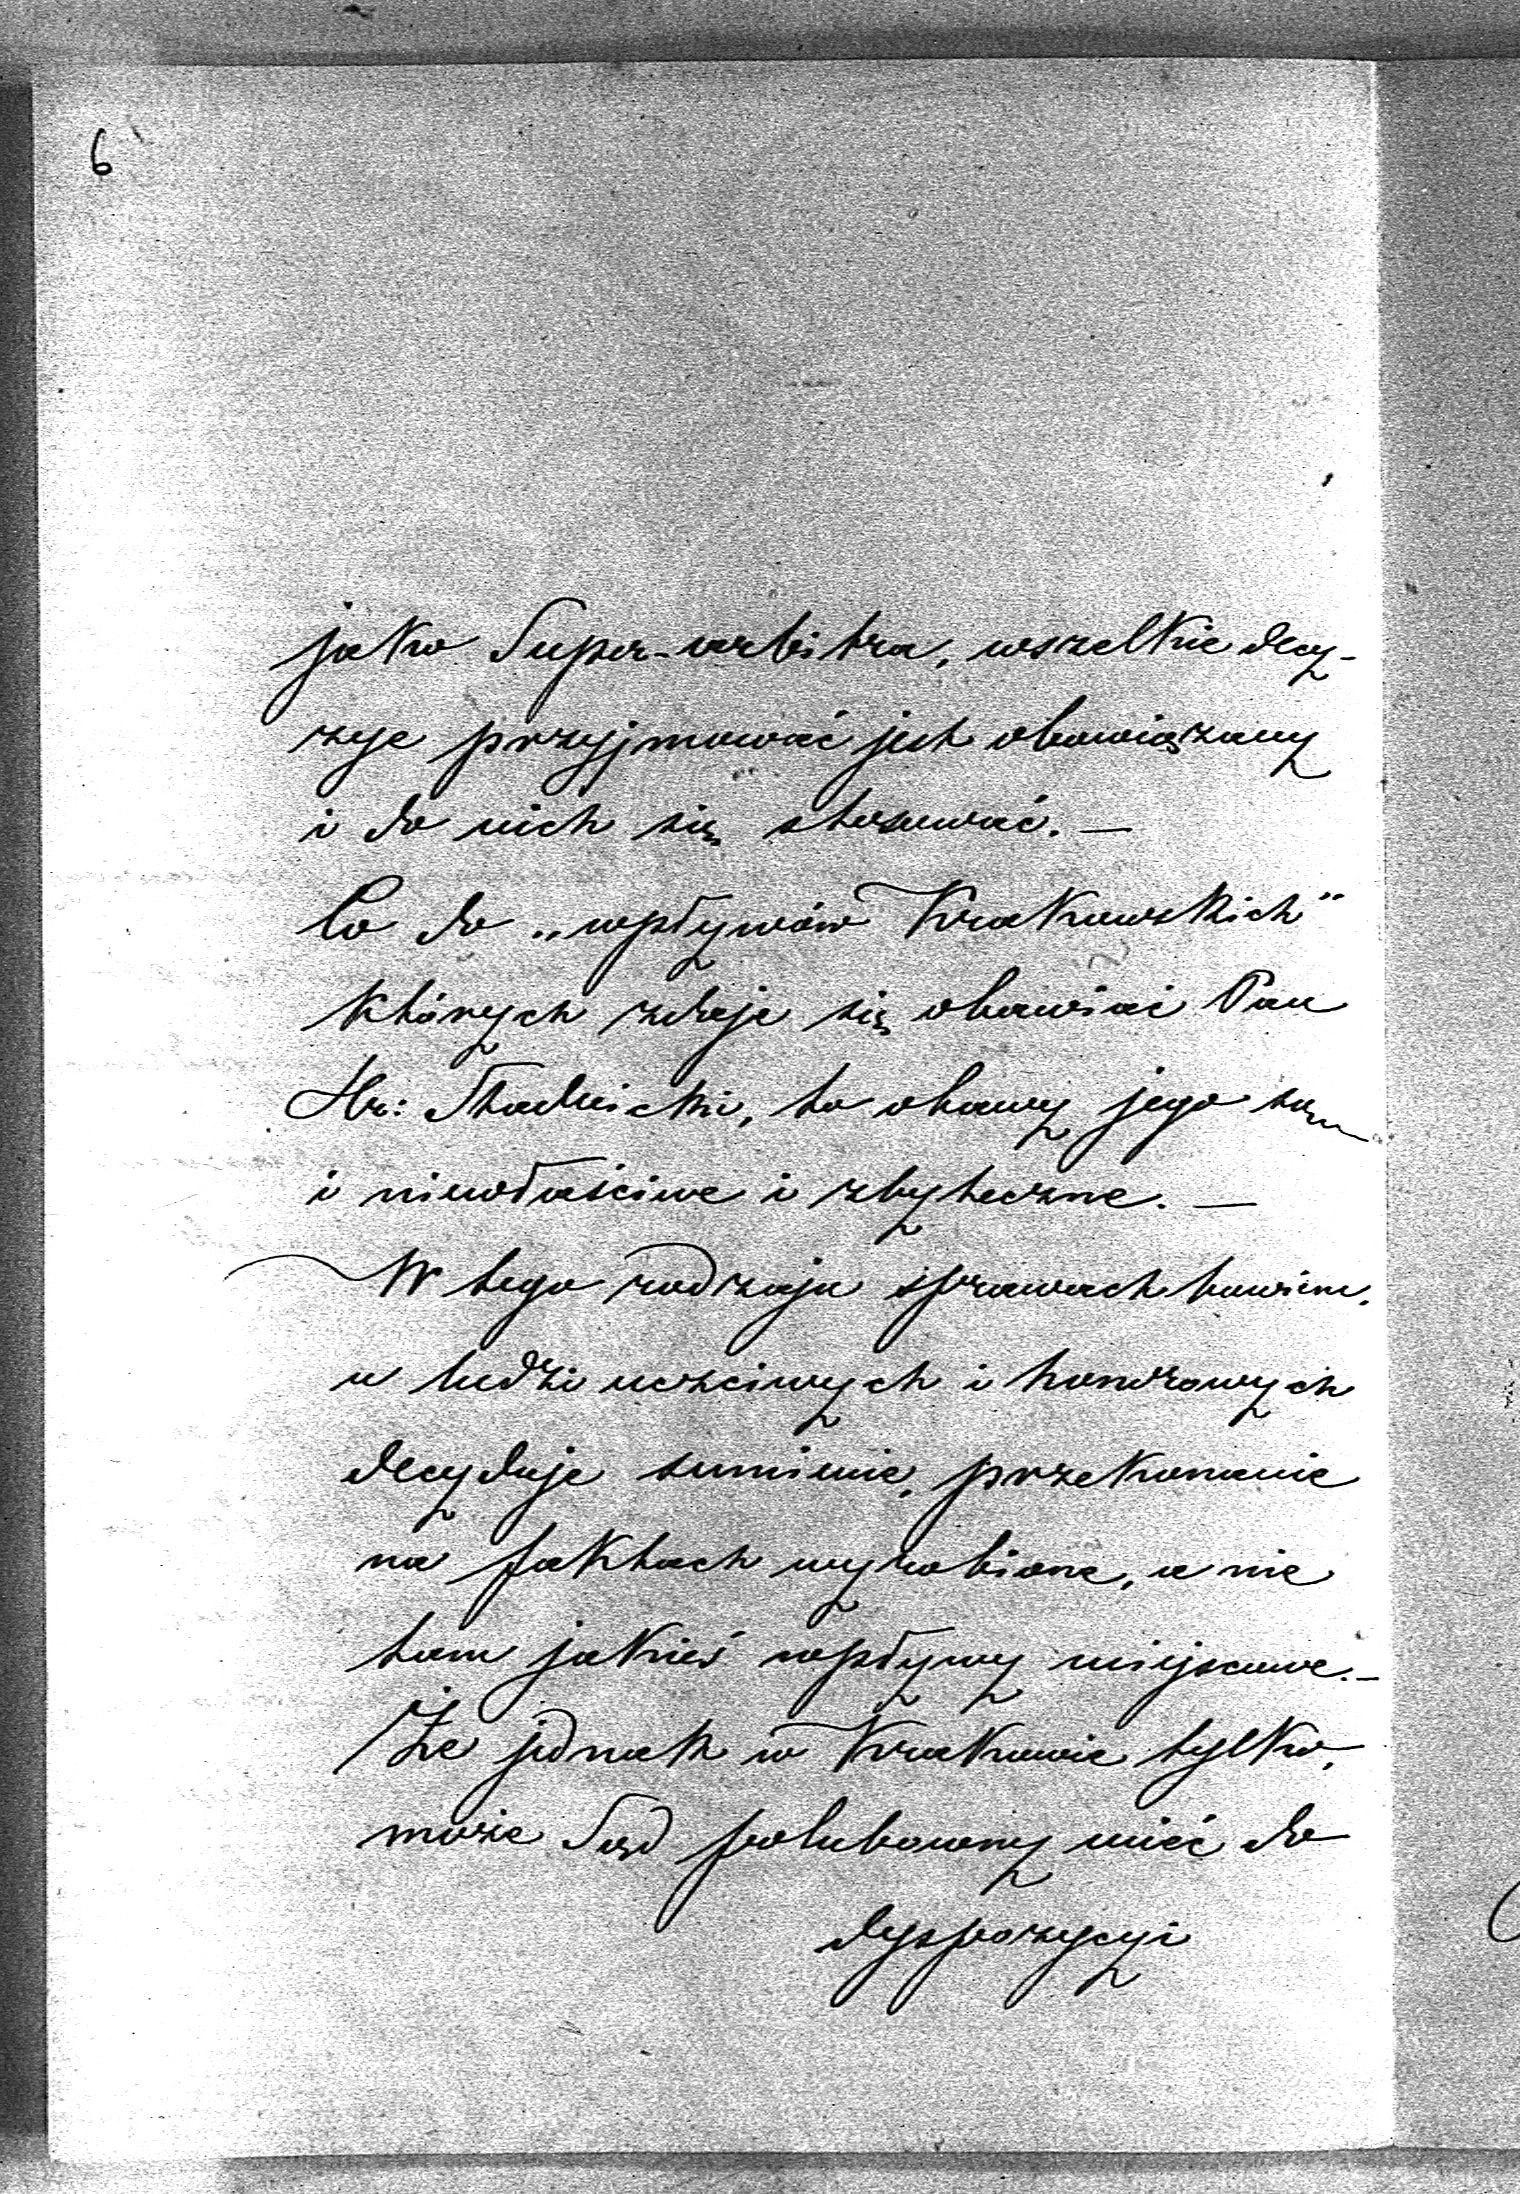 6
jako Super-arbitra, wszelkie decy-
zye przyjmować jest obowiązany
i do nich się stosować. —
Co do „wpływów Krakowskich"
których zdaje się obawiać Pan
Hr: Stadnicki, to obawy jego są
i niewłaściwe i zbyteczne. —
W tego rodzaju sprawach bowiem,
u ludzi uczciwych i honorowych
decyduje sumienie, przekonanie
na faktach wyrobione, a nie
tam jakieś wpływy miejscowe. —
Że jednak w Krakowie tylko,
może Sąd polubowny mieć do
dyspozycyi